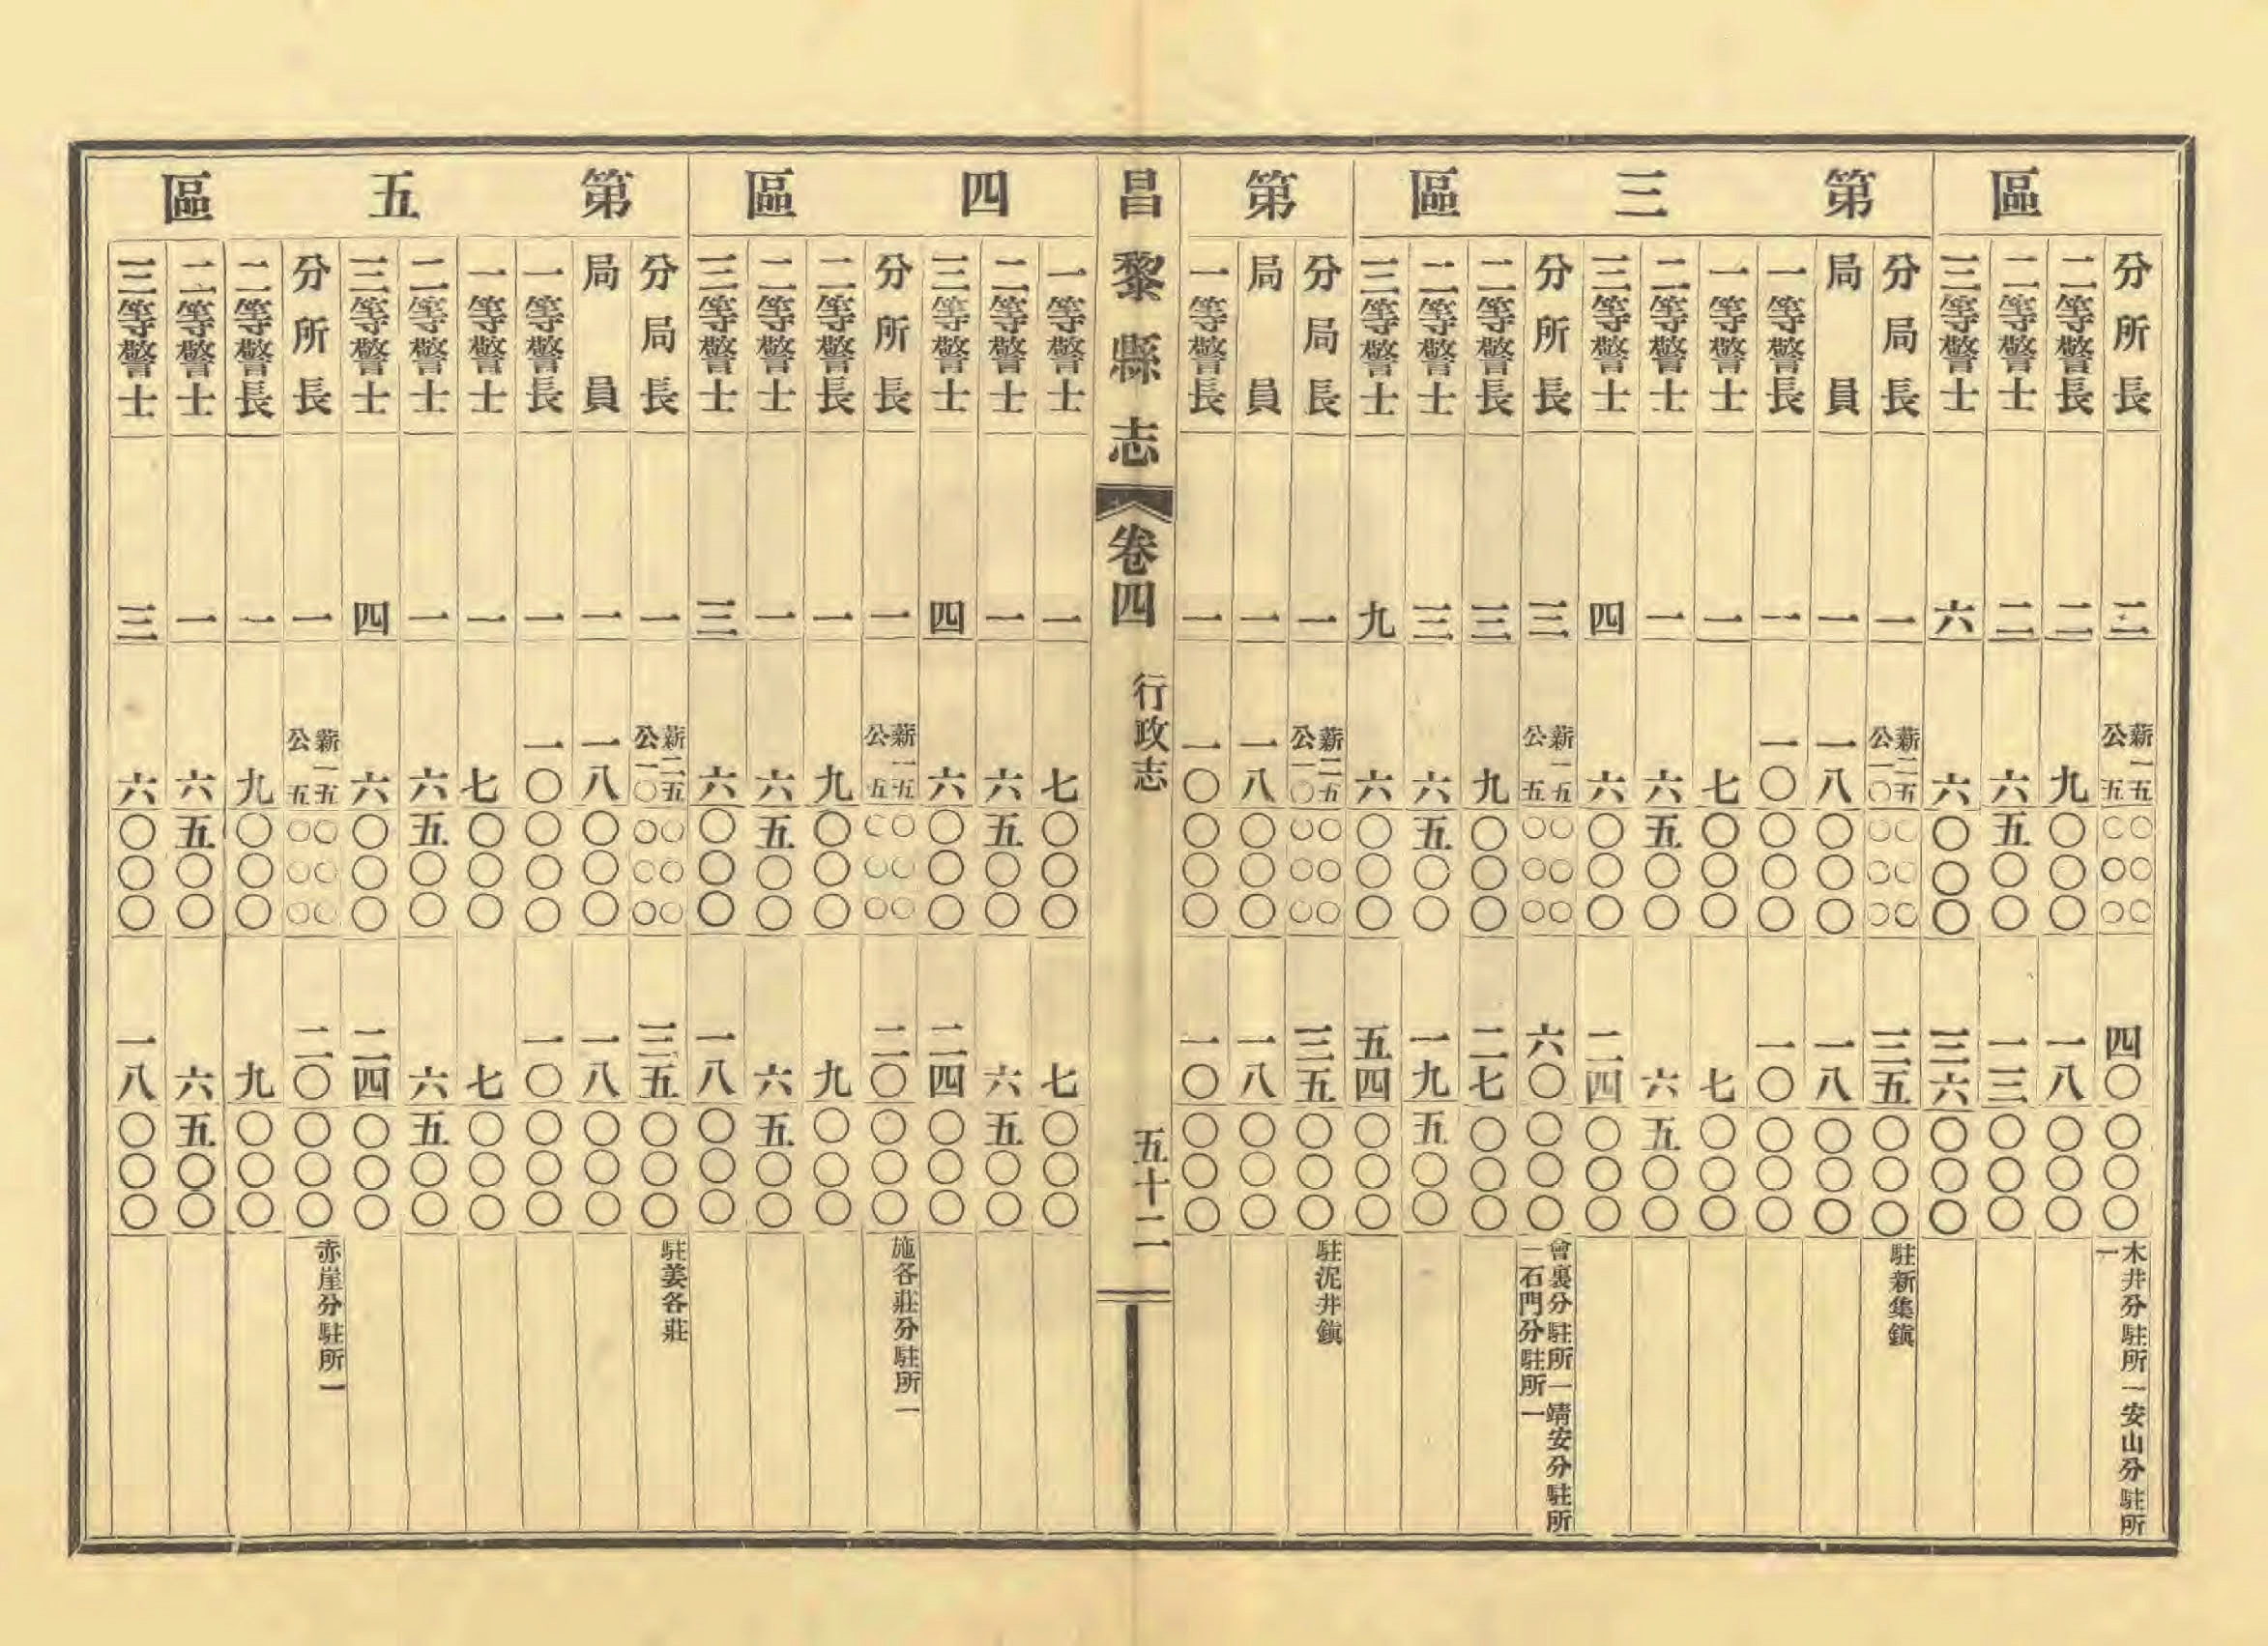 區
分所長 二 薪一五〇〇〇 公五〇〇〇 四〇〇〇〇 木井分駐所一安山分駐所一
二等警長 二 九〇〇〇 一八〇〇〇
二等警士 二 六五〇〇 一三〇〇〇
三等警士 六 六〇〇〇 三六〇〇〇
第三區
分局長 一 薪二五〇〇〇 公一〇〇〇〇 三五〇〇〇 駐新集鎮
局員 一 一八〇〇〇 一八〇〇〇
一等警長 一 一〇〇〇〇 一〇〇〇〇
一等警士 一 七〇〇〇 七〇〇〇
二等警士 一 六五〇〇 六五〇〇
三等警士 四 六〇〇〇 二四〇〇〇
分所長 三 薪一五〇〇〇 公五〇〇〇 六〇〇〇〇 會裏分駐所一靖安分駐所一石門分駐所一
二等警長 三 九〇〇〇 二七〇〇〇
二等警士 三 六五〇〇 一九五〇〇
三等警士 九 六〇〇〇 五四〇〇〇
第
分局長 一 薪二五〇〇〇 公一〇〇〇〇 三五〇〇〇 駐泥井鎮
局員 一 一八〇〇〇 一八〇〇〇
一等警長 一 一〇〇〇〇 一〇〇〇〇
昌黎縣志 卷四 行政志 五十二
四區
一等警士 一 七〇〇〇 七〇〇〇
二等警士 一 六五〇〇 六五〇〇
三等警士 四 六〇〇〇 二四〇〇〇
分所長 一 薪一五〇〇〇 公五〇〇〇 二〇〇〇〇 施各莊分駐所一
二等警長 一 九〇〇〇 九〇〇〇
二等警士 一 六五〇〇 六五〇〇
三等警士 三 六〇〇〇 一八〇〇〇
第五區
分局長 一 薪二五〇〇〇 公一〇〇〇〇 三五〇〇〇 駐姜各莊
局員 一 一八〇〇〇 一八〇〇〇
一等警長 一 一〇〇〇〇 一〇〇〇〇
一等警士 一 七〇〇〇 七〇〇〇
二等警士 一 六五〇〇 六五〇〇
三等警士 四 六〇〇〇 二四〇〇〇
分所長 一 薪一五〇〇〇 公五〇〇〇 二〇〇〇〇 赤崖分駐所一
二等警長 一 九〇〇〇 九〇〇〇
二等警士 一 六五〇〇 六五〇〇
三等警士 三 六〇〇〇 一八〇〇〇